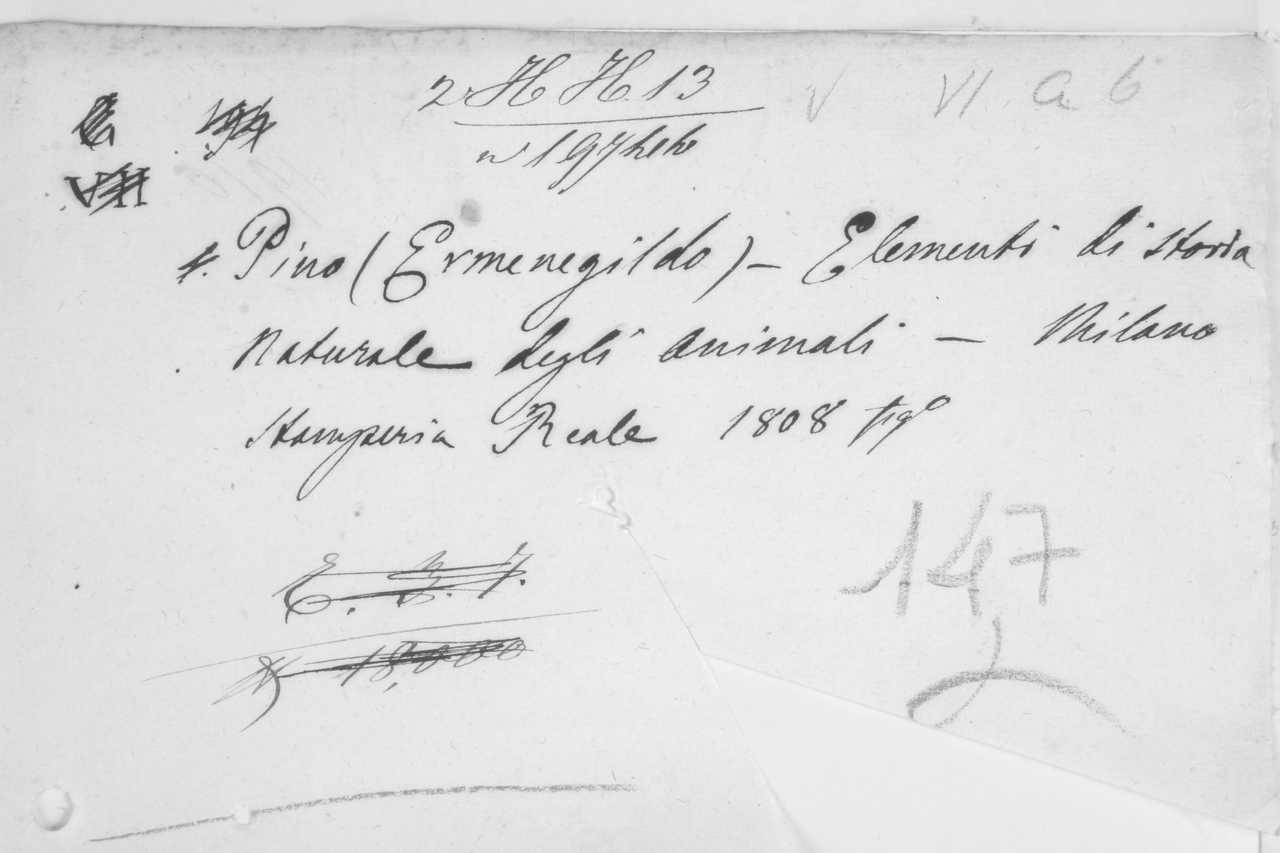 2. H H. 13
V VI a 6
VII
Pino (Ermenegildo) – Elementi di storia
Naturale degli animali – Milano
Stamperia Reale 1808 figº
147
E. 3. 7.
18,000